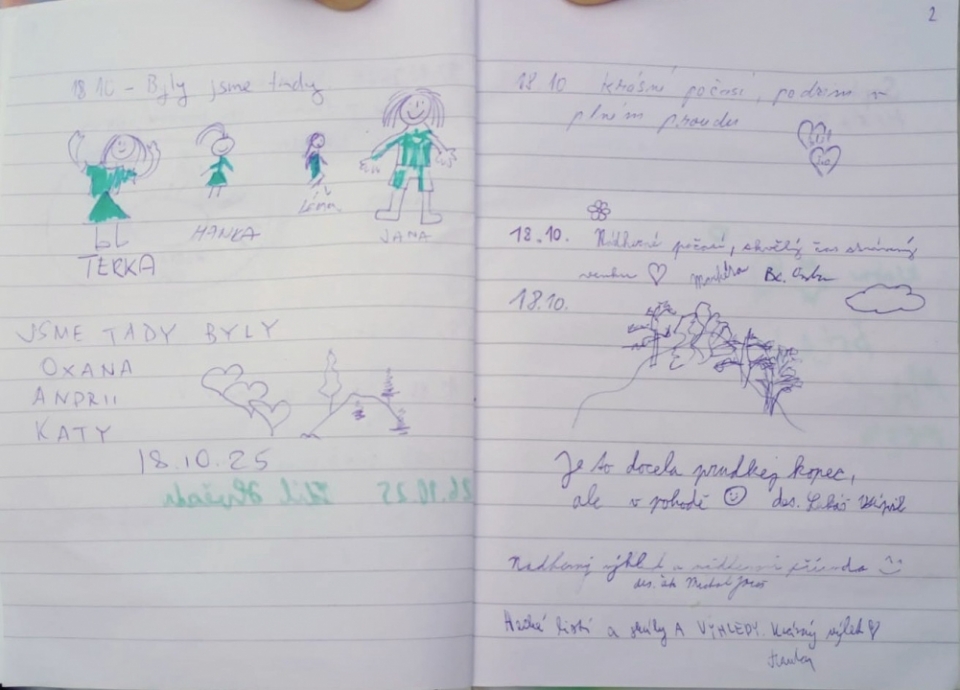 18.10 - Byly jsme tady
TERKA
HANKA
JANA
JSME TADY BYLY
OXANA
ANDRII
KATY
18.10.25
2
18.10 krásné počasí, podzim v
plném proudu
18.10. Nádherné počasí, skvělý čas strávený
venku ♡ Markéta Bc.
18.10.
Je to docela prudkej kopec,
ale v pohodě ☺ des.
Nádherný výhled a nádherná příroda
Hezké listí a skály A VÝHLEDY. Krásný výlet ♡